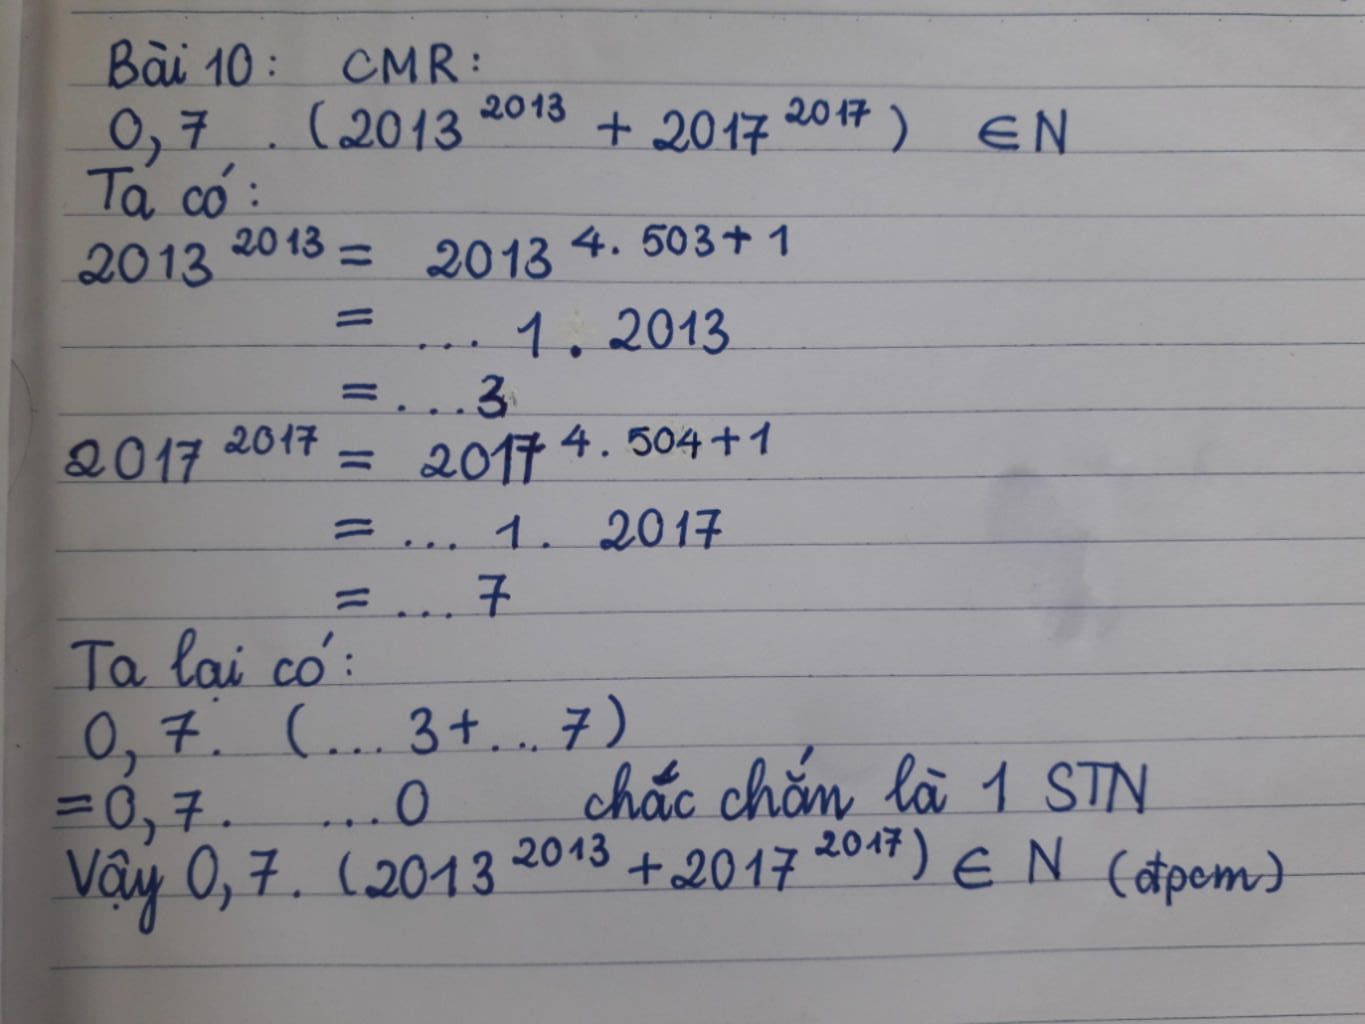 Bài 10: CMR:
0,7 . (2013^2013 + 2017^2017) ∈ N
Ta có:
2013^2013 = 2013^4. 503+1
= ... 1 . 2013
= ...3
2017^2017 = 2017^4. 504+1
= ... 1. 2017
= ... 7
Ta lại có:
0,7. (...3+...7)
=0,7. ...0 chắc chắn là 1 STN
Vậy 0,7. (2013^2013 + 2017^2017) ∈ N (đpcm)